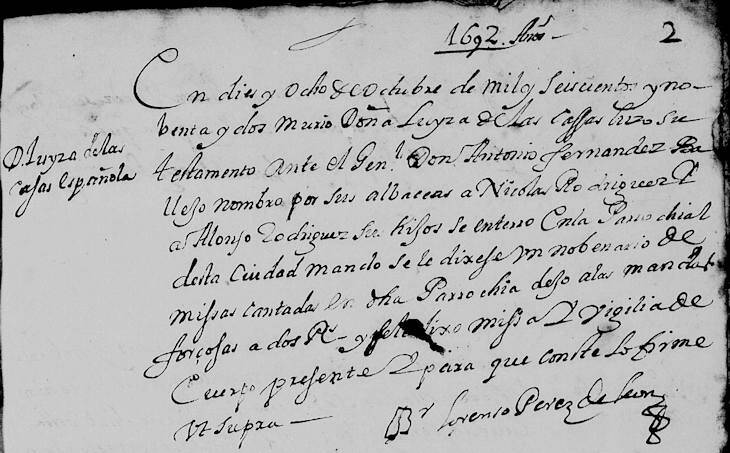 1692. Años
2
D. Luyza de las
Casas Española
En dies y ocho de octubre de mil y seiscientos y no-
benta y dos murio Doña Luyza de las Cassas hizo su
testamento ante el Gen.l Don Antonio fernandez
nombro por sus albaceas a Nicolas Rodriguez Y
a Alonso Rodriguez sus hijos se enterro en la Parrochial
desta ciudad mando se le dixese un nobenario de
missas cantadas en dha Parrochia dejo a las mandas
forçosas a dos Rs y se le dixo missa Y vigilia de
Cuerpo presente Y para que conste lo firme
Vt supra
Br Lorenso Perez de leon